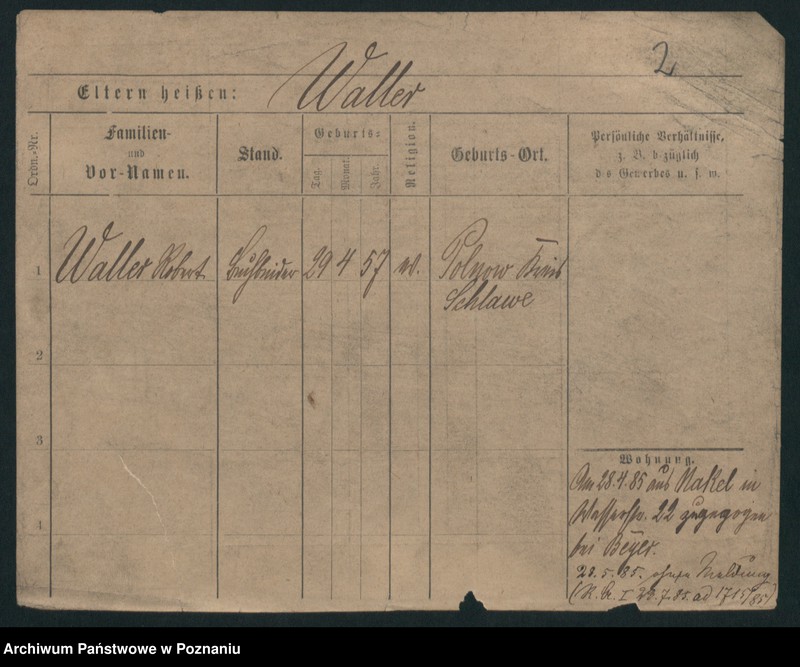 2
Eltern heißen: Waller
Ordn.-Nr.
Familien-
und
Vor-Namen.
Stand.
Geburts:
Tag.
Monat.
Jahr.
Religion.
Geburts-Ort.
Persönliche Verhältnisse,
z. B. bezüglich
des Gewerbes u. s. w.
1 Waller Robert Buchbinder 29 4 57 ev. Polnow Kreis
Schlawe
2
3
4
Wohnung.
Am 28.4.85 aus Nakel in
Wasserstr. 22 zugezogen
bei Beyer.
28.5.85. ohne Meldung
7.85. ad 1715/85)
Archiwum Państwowe w Poznaniu